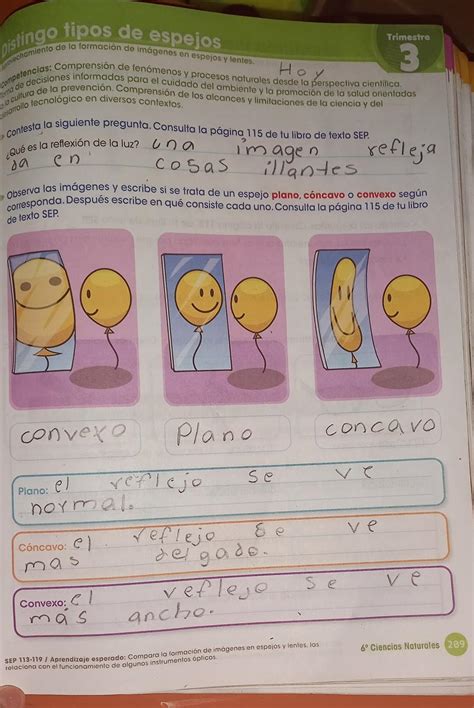 Distingo tipos de espejos
Trimestre
3
Aprovechamiento de la formación de imágenes en espejos y lentes.
Hoy
Competencias: Comprensión de fenómenos y procesos naturales desde la perspectiva científica.
Toma de decisiones informadas para el cuidado del ambiente y la promoción de la salud orientadas
a la cultura de la prevención. Comprensión de los alcances y limitaciones de la ciencia y del
desarrollo tecnológico en diversos contextos.
Contesta la siguiente pregunta. Consulta la página 115 de tu libro de texto SEP.
¿Qué es la reflexión de la luz? una imagen refleja
da en cosas illantes
Observa las imágenes y escribe si se trata de un espejo plano, cóncavo o convexo según
corresponda. Después escribe en qué consiste cada uno. Consulta la página 115 de tu libro
de texto SEP.
convexo
Plano
concavo
Plano: el reflejo se ve
normal.
Cóncavo: el reflejo se ve
mas delgado.
Convexo: el reflejo se ve
más ancho.
SEP 113-119 / Aprendizaje esperado: Compara la formación de imágenes en espejos y lentes, las
relaciona con el funcionamiento de algunos instrumentos ópticos.
6° Ciencias Naturales
209